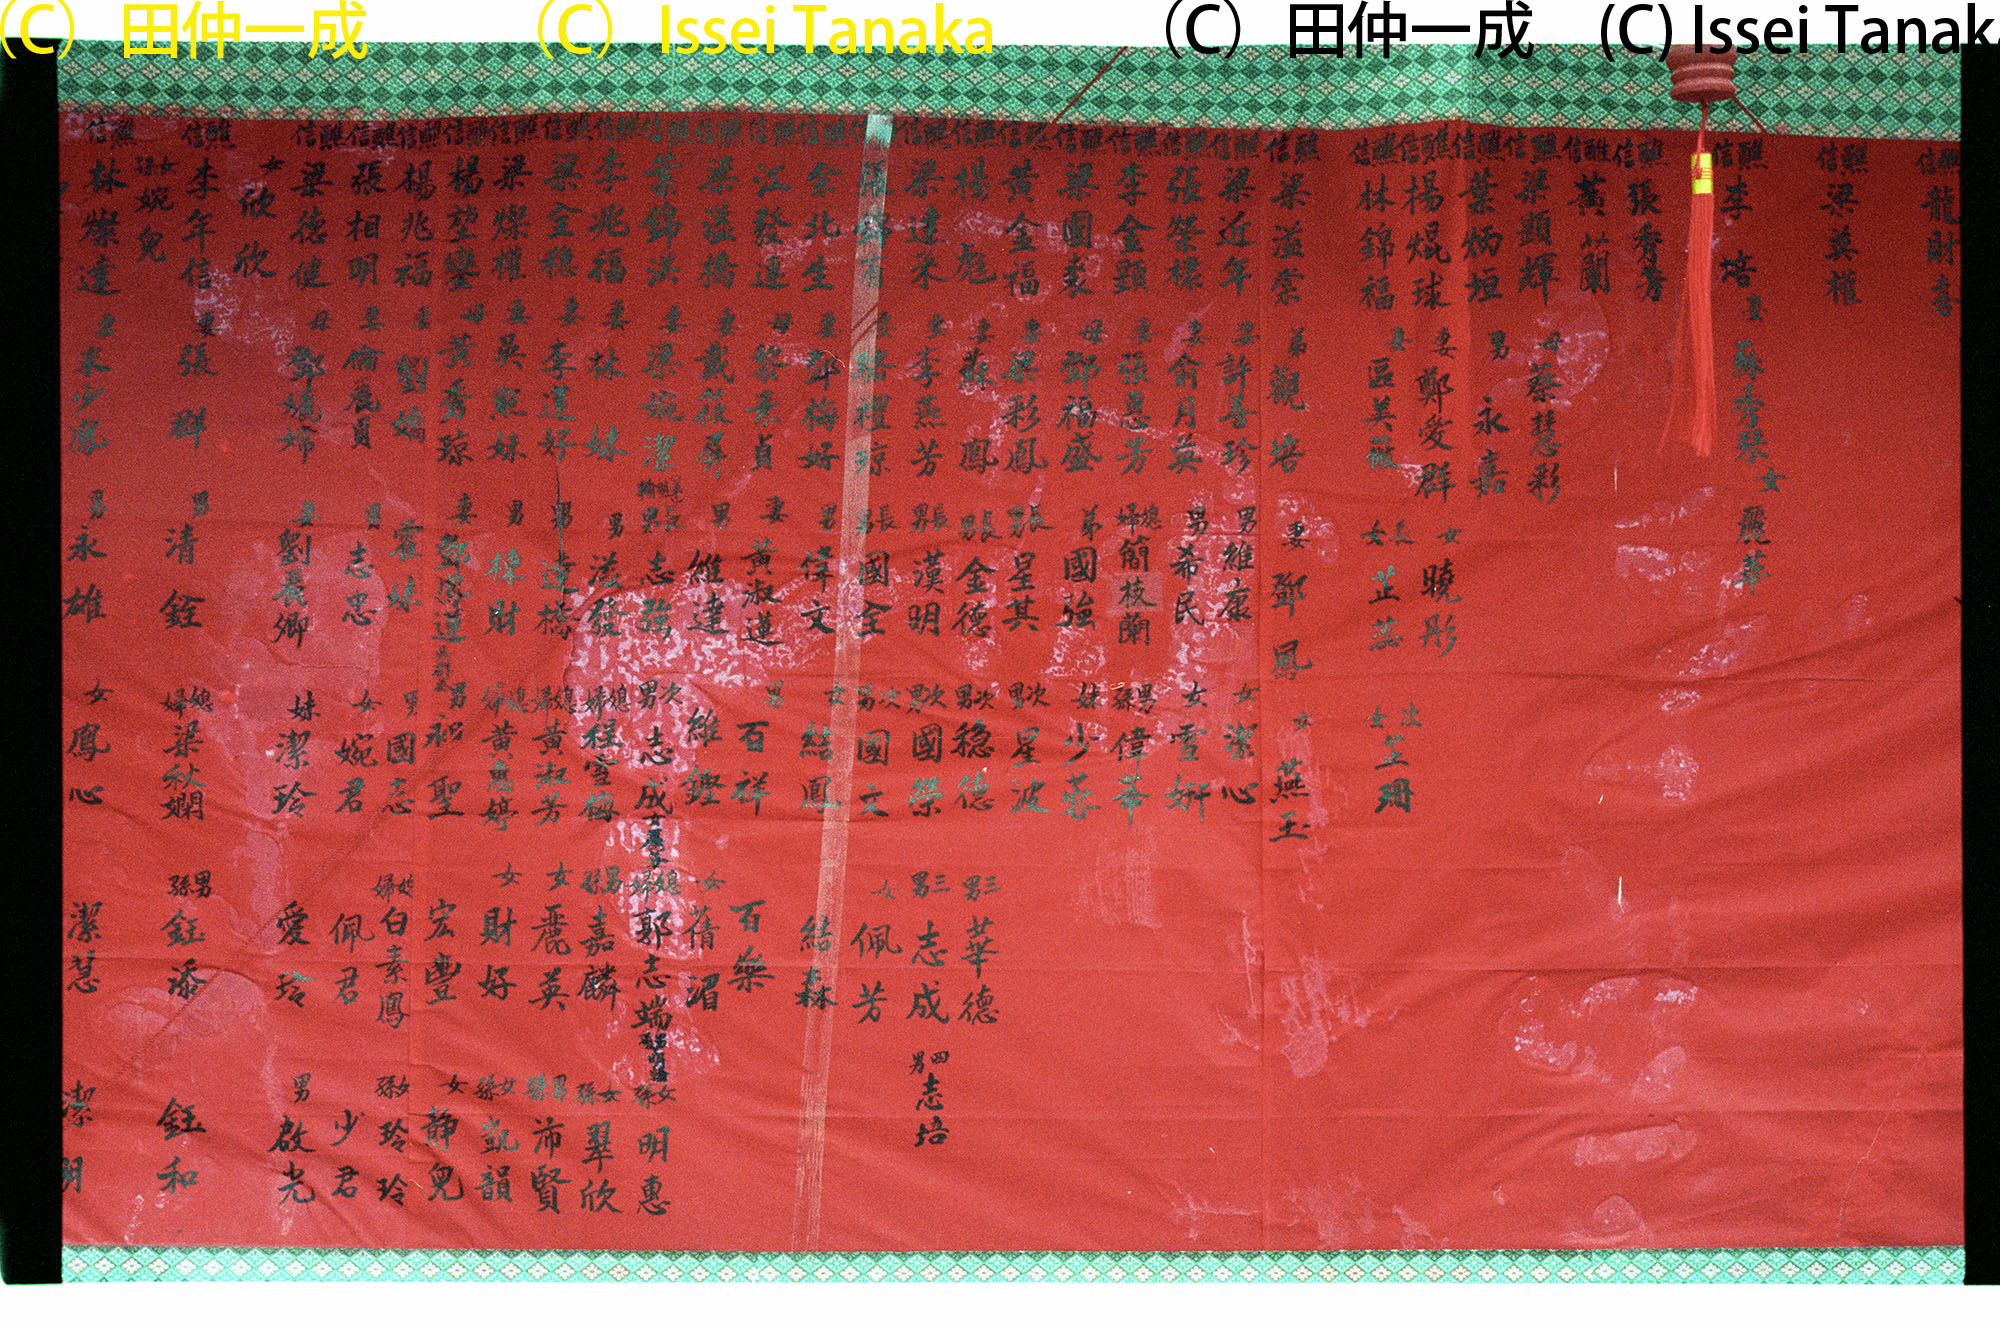 (C) 田仲一成 (C) Issei Tanaka (C) 田仲一成 (C) Issei Tanaka
醮信 龍財
醮信 梁英權
醮信 李培 蘇秀琴 女 麗華
醮信 張秀芳
醮信 黃蘭
醮信 梁顯輝 母 蔡慧彩
醮信 葉炳垣 男 永嘉
醮信 楊焜球 妻 鄭愛群 女 曉彤
醮信 林錦福 妻 區美薇 長女 芷蕊 次女 芷珊
醮信 梁溢棠 弟 觀培 妻 鄧鳳 女 燕玉
醮信 梁近年 妻 許善珍 男 維康 女 潔心
醮信 張榮樑 妻 俞月英 男 希民 女 雪妍
醮信 李金顯 妻 張惠芳 媳婦 簡枝蘭 男孫 偉華
醮信 梁國裘 母 鄧福盛 弟 國強 妹 少蓉
醮信 黃金福 妻 梁彩鳳 長男 星其 次男 星波
醮信 楊彪 妻 蘇鳳 長男 金德 次男 穩德 三男 華德
醮信 梁達禾 妻 李燕芳 長男 漢明 次男 國榮 三男 志成 四男 志培
長男 國全 次男 國文 女 佩芳
醮信 余北生 妻 鄧梅好 男 偉文 女 結鳳 結森
醮信 江發運 母 黎素貞 妻 黃淑蓮 男 百祥 百樂
醮信 梁溢橋 妻 戴筱屏 男 維達 維鏗 女 蒨湄
醮信 葉錦洪 妻 梁婉潔 長男 志強 次男 志成 媳婦 郭志端 女孫 明惠
醮信 李兆福 妻 林妹 男 滋發 媳婦 程雪梅 男孫 嘉麟 女孫 翠欣
醮信 梁全穩 妻 李蓮好 男 達橋 媳婦 黃淑芳 女 麗英 男孫 沛賢
醮信 梁燦權 妻 吳妮妹 男 棟財 媳婦 黃惠婷 女 財好 女孫 凱韻
醮信 楊堃鑾 母 黃秀琼 妻 鄧鳳蓮 男 和聖 宏豐 女 靜兒
醮信 楊兆福 妻 劉嬌 霍妹 男 國志 媳婦 白素鳳 女孫 玲玲
醮信 張相明 妻 倫鹿貞 男 志忠 女 婉君 佩君 少君
醮信 梁德健 母 鄧嬈婦 妻 劉長卿 妹 潔玲 愛玲 男 啟光
女 欣欣
醮信 李年信 妻 張群 男 清銓 媳婦 梁秋嫻 男孫 鈺添 鈺和
女孫 婉兒
醮信 林燦達 妻 朱少鳳 男 永雄 女 鳳心 潔慧 潔明